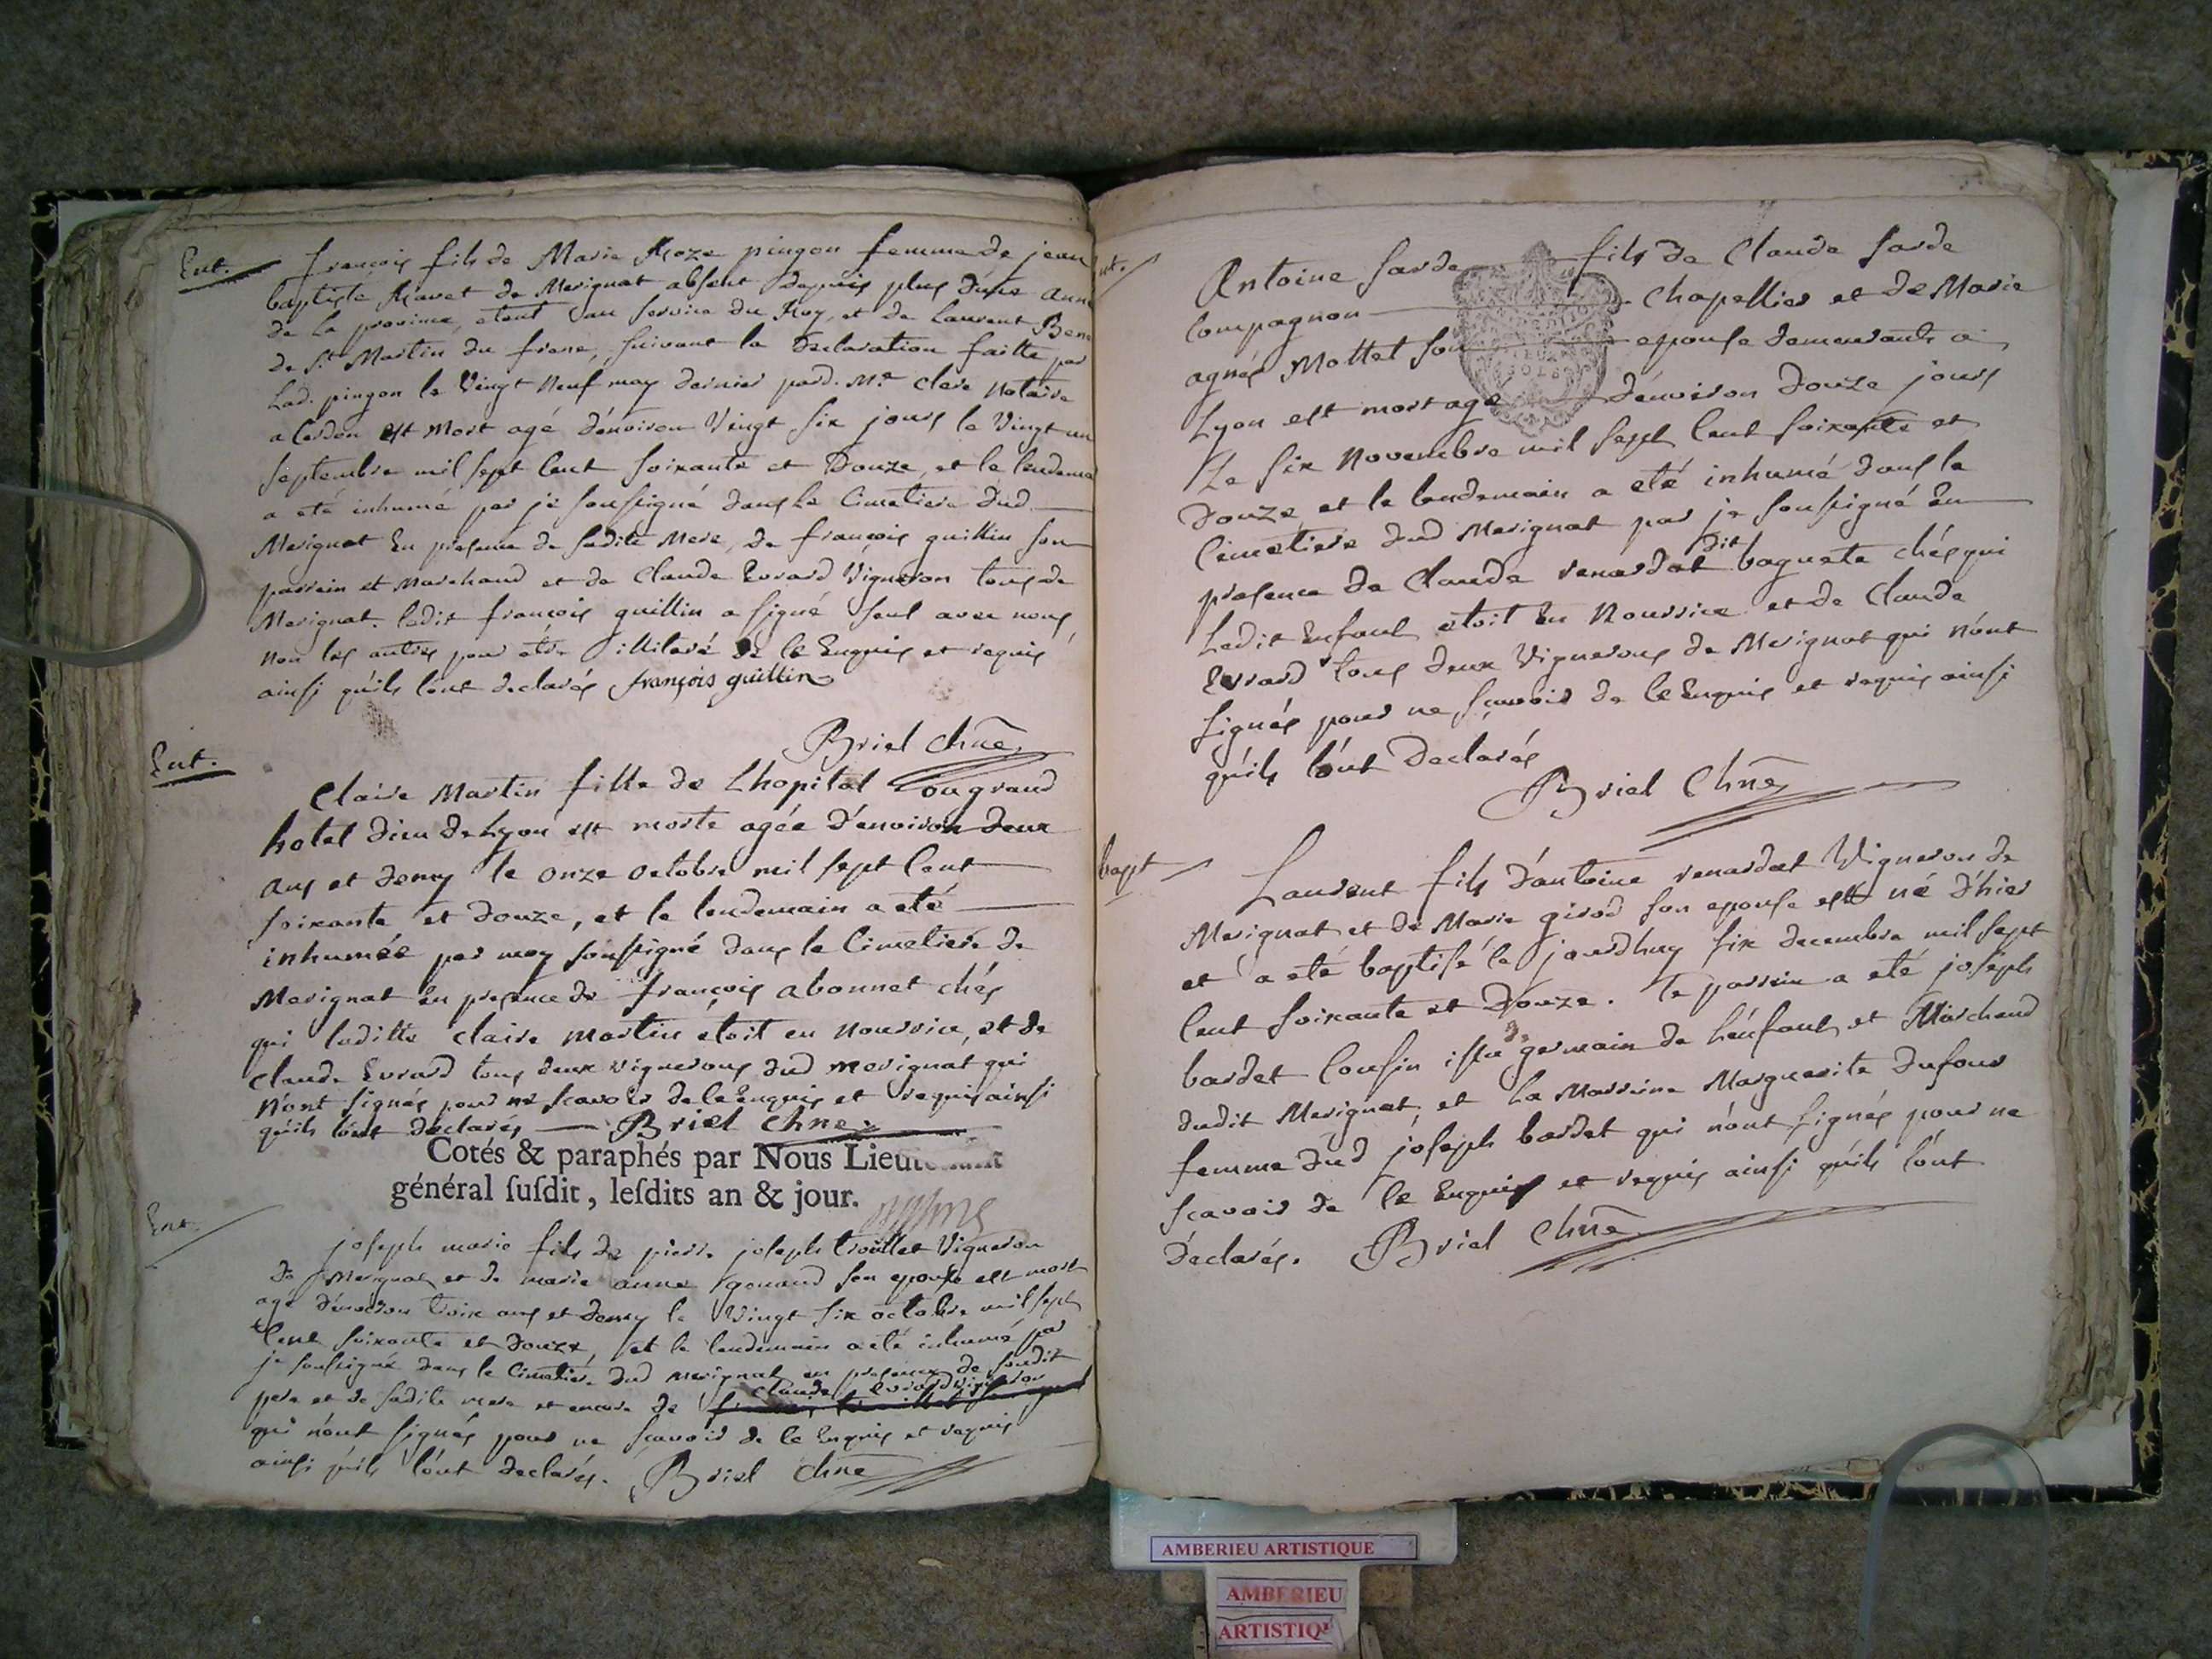 Ent.
françois fils de Marie Roze pingon femme de jean
baptiste Ravet de Merignat absent depuis plus d'une ann
de la province, etent au service du Roy, et de Laurent Bene
de St. Martin du frene, suivant la declaration faitte par
Lad. pingon le Vingt neuf may dernier pard. Me clerc notaire
a Cerdon est mort agé d'environ Vingt six jours le Vingt un
septembre mil sept Cent soixante et Douze, et le lendema
a eté inhumé par je soussigné dans Le Cimetiere dud
Merignat En presence de sadite Mere, de françois guillin son
parrain et Marchand et de Claude Evrard Vigneron tous de
Merignat. ledit françois guillin a signé seul avec nous
non les autres pour etre illiteré de ce Enquis et requis
ainsi qu'ils l'ont declarés françois guillin
Briel chne
Ent.
Claire Martin fille de Lhopital ou grand
hotel dieu de Lyon est morte agée d'environ deux
ans et demy le onze octobre mil sept Cent
soixante et douze, et le lendemain a eté
inhumée par moy soussigné dans le Cimetiere de
Merignat En presence de françois abonnet chés
qui laditte Claire martin etoit en nourrice, et de
Claude Evrard tous deux vignerons dud merignat qui
n'ont signés pour ne scavoir de ce enquis et requis ainsi
qu'ils l'ont declarés Briel Chne
Cotés & paraphés par Nous Lieutenant
général ſuſdit, leſdits an & jour.
Ent.
joseph marie fils de pierre joseph trouillet Vigneron
de Merignat et de marie anne gonand son epouse est mort
agé d'environ trois ans et demy le Vingt six octobre mil sept
Cent soixante et douze, et le lendemain a eté inhumé par
je soussigné dans le Cimetiere dud merignat en presence de soudit
Claude Evrard vigneron
pere et de sadite mere et encore de
qui n'ont signés pour ne scavoir de ce Enquis et requis
ainsi qu'ils l'ont declarés. Briel Chne
nt.
Antoine sarde fils de Claude sarde
Compagnon Chapellier et de Marie
agnés Mottet son epouse demeurants a
Lyon est mort agé d'environ douze jours
Le six Novembre mil sept Cent soixante et
Douze et le lendemain a eté inhumé dans le
Cimetiere dud Merignat par je soussigné En
presence de Claude renardat dit baguete chés qui
Ledit Enfant etoit En Nourrice et de Claude
Evrard tous deux Vignerons de Merignat qui n'ont
signés pour ne sçavoir de ce Enquis et requis ainsi
qu'ils l'ont Declarés
Briel Chne
bapt
Laurent fils d'antoine renardat Vigneron de
Merignat et de Marie girod son epouse est né d'hier
et a eté baptisé le jourdhuy six decembre mil sept
Cent soixante et Douze. Le parrein a eté joseph
bardet Cousin issu de germain de L'enfant et Marchand
dudit Merignat et La Marreine Marguerite Dufour
femme dud joseph bardet qui n'ont signés pour ne
scavoir de ce Enquis et requis ainsi qu'ils l'ont
declarés. Briel Chne
AMBERIEU ARTISTIQUE
AMBERIEU
ARTISTIQU